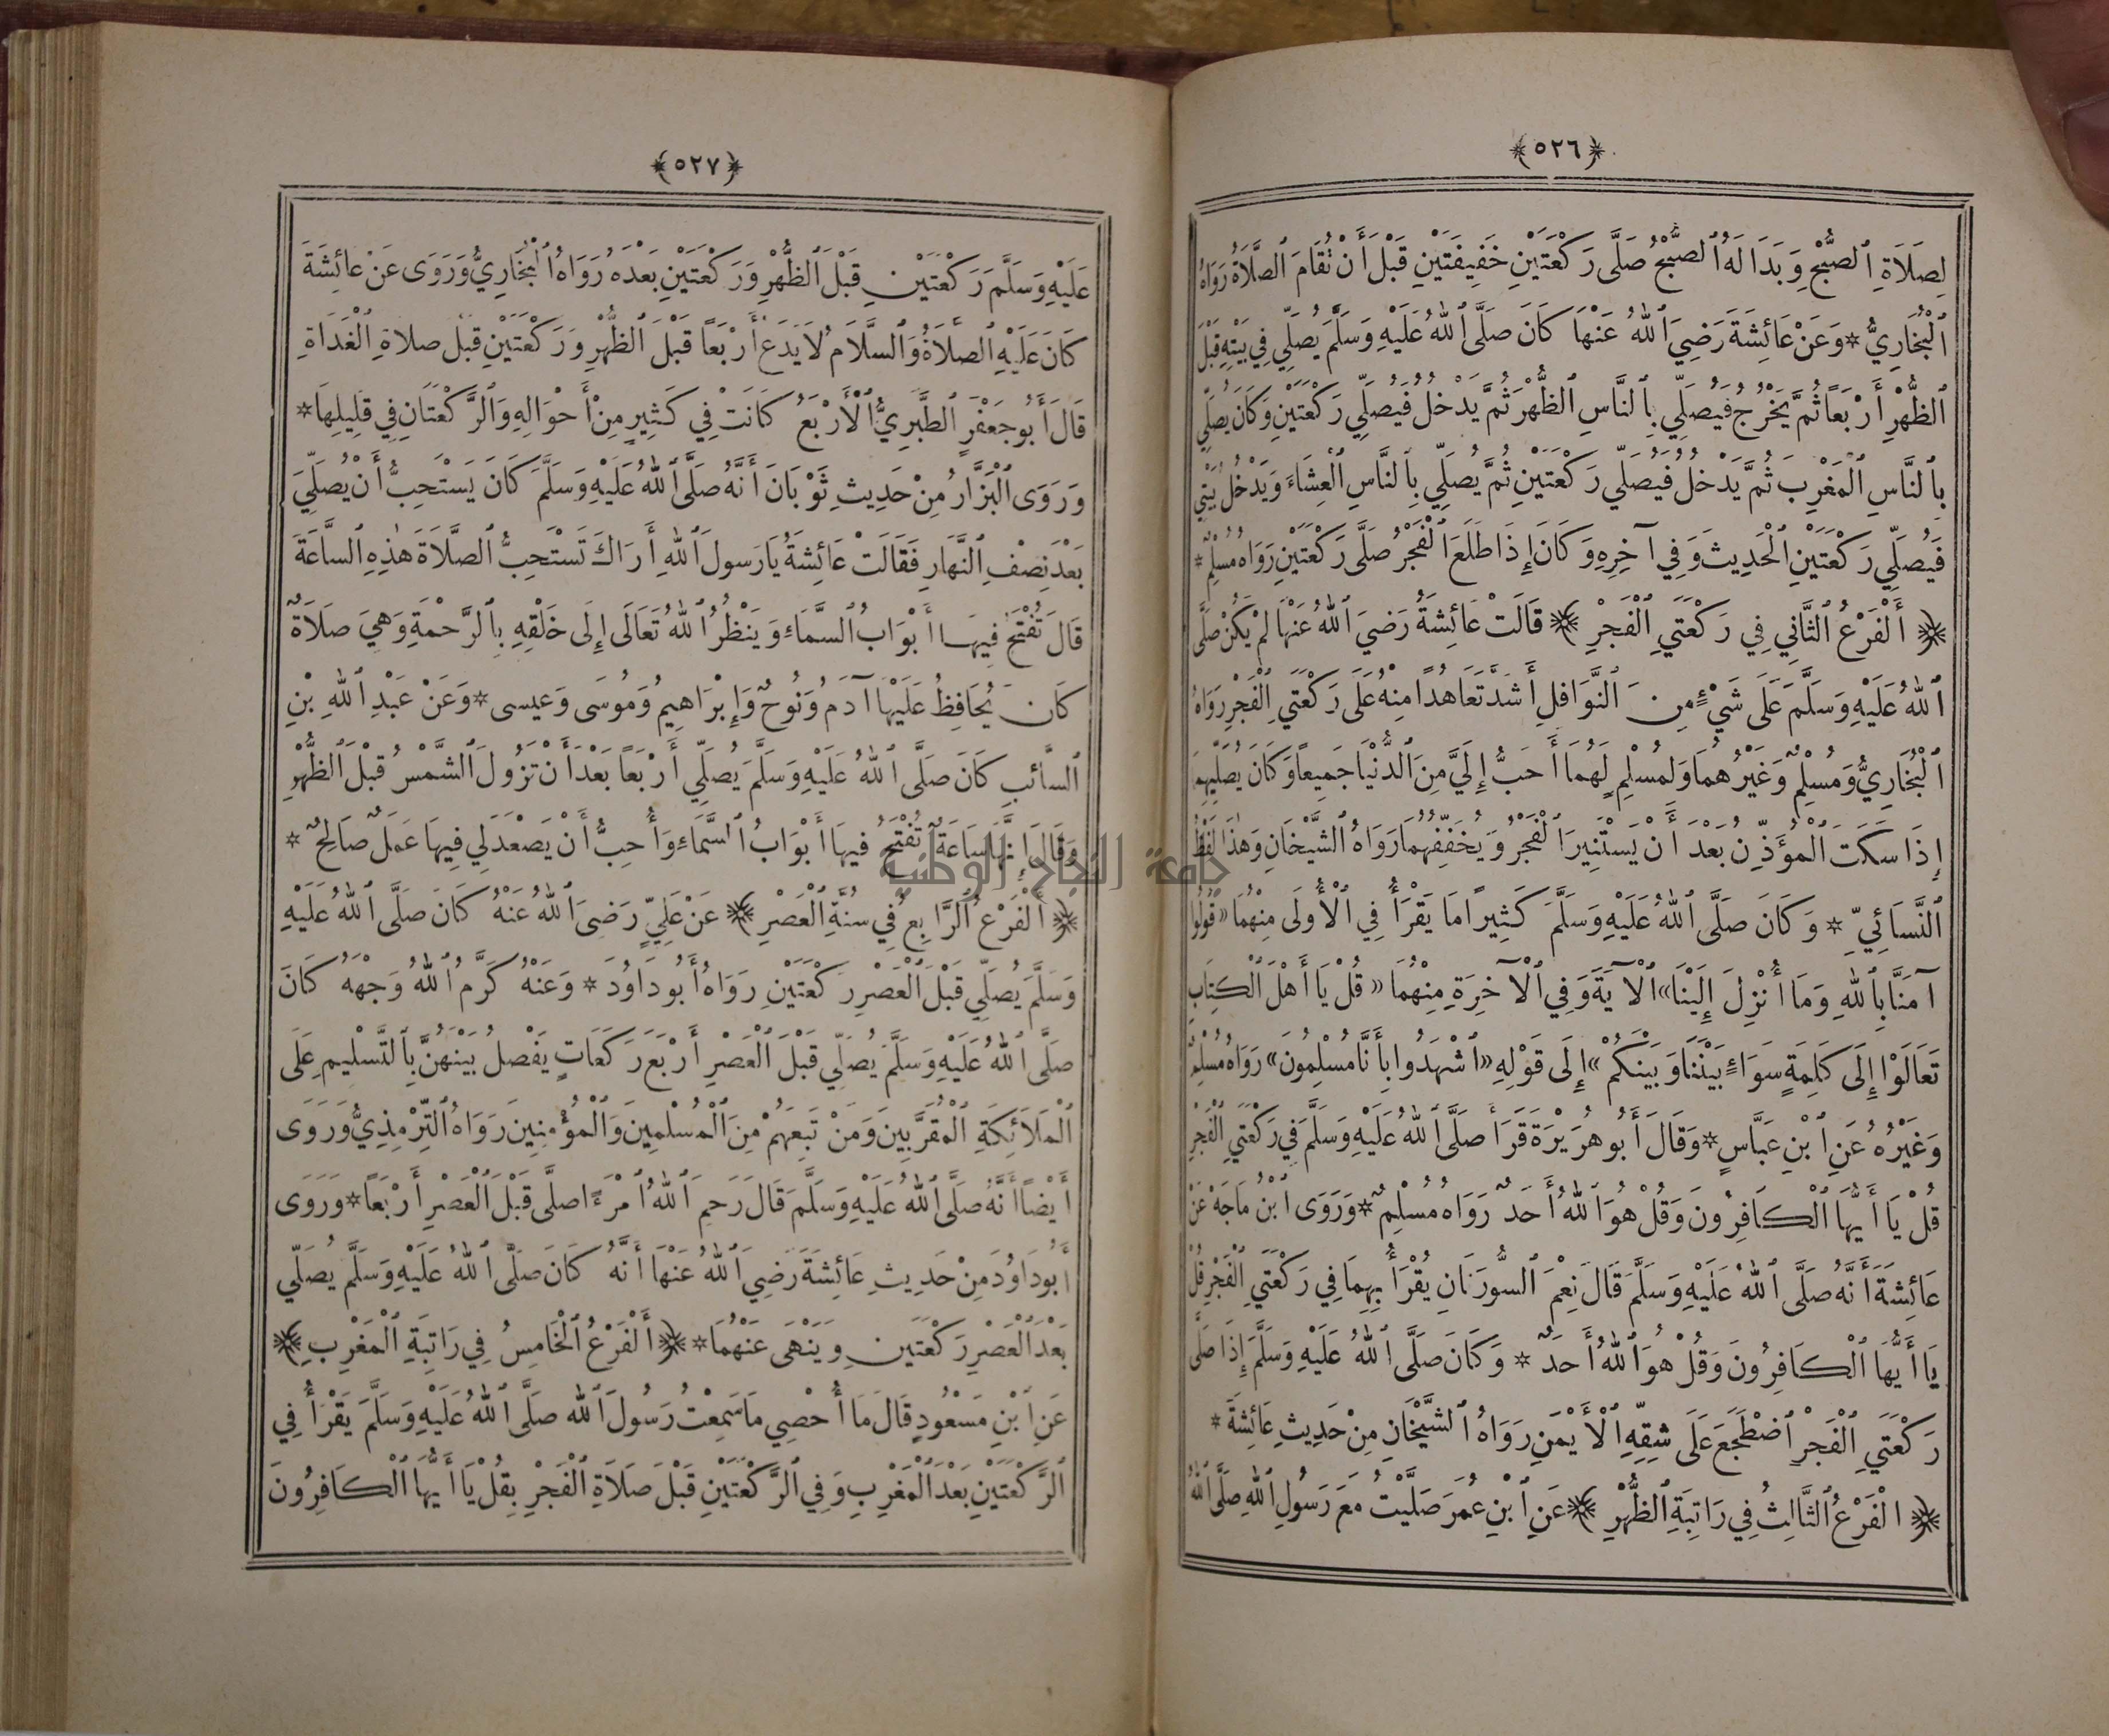 ﴿٥٢٦﴾
لِصَلَاةِ ٱلصُّبْحِ وَبَدَا لَهُ ٱلصُّبْحُ صَلَّى رَكْعَتَيْنِ خَفِيفَتَيْنِ قَبْلَ أَنْ تُقَامَ ٱلصَّلَاةُ رَوَاهُ
ٱلْبُخَارِيُّ * وَعَنْ عَائِشَةَ رَضِيَ ٱللهُ عَنْهَا كَانَ صَلَّى ٱللهُ عَلَيْهِ وَسَلَّمَ يُصَلِّي فِي بَيْتِهِ قَبْلَ
ٱلظُّهْرِ أَرْبَعًا ثُمَّ يَخْرُجُ فَيُصَلِّي بِٱلنَّاسِ ٱلظُّهْرَ ثُمَّ يَدْخُلُ فَيُصَلِّي رَكْعَتَيْنِ وَكَانَ يُصَلِّي
بِٱلنَّاسِ ٱلْمَغْرِبَ ثُمَّ يَدْخُلُ فَيُصَلِّي رَكْعَتَيْنِ ثُمَّ يُصَلِّي بِٱلنَّاسِ ٱلْعِشَاءَ وَيَدْخُلُ بَيْتِي
فَيُصَلِّي رَكْعَتَيْنِ ٱلْحَدِيثَ وَفِي آخِرِهِ وَكَانَ إِذَا طَلَعَ ٱلْفَجْرُ صَلَّى رَكْعَتَيْنِ رَوَاهُ مُسْلِمٌ *
﴿ أَلْفَرْعُ ٱلثَّانِي فِي رَكْعَتَيِ ٱلْفَجْرِ ﴾ قَالَتْ عَائِشَةُ رَضِيَ ٱللهُ عَنْهَا لَمْ يَكُنْ صَلَّى
ٱللهُ عَلَيْهِ وَسَلَّمَ عَلَى شَيْءٍ مِنَ ٱلنَّوَافِلِ أَشَدَّ تَعَاهُدًا مِنْهُ عَلَى رَكْعَتَيِ ٱلْفَجْرِ رَوَاهُ
ٱلْبُخَارِيُّ وَمُسْلِمٌ وَغَيْرُهُمَا وَلِمُسْلِمٍ لَهُمَا أَحَبُّ إِلَيَّ مِنَ ٱلدُّنْيَا جَمِيعًا وَكَانَ يُصَلِّيهِمَا
إِذَا سَكَتَ ٱلْمُؤَذِّنُ بَعْدَ أَنْ يَسْتَنِيرَ ٱلْفَجْرُ وَيُخَفِّفُهُمَا رَوَاهُ ٱلشَّيْخَانِ وَهٰذَا لَفْظُ
ٱلنَّسَائِيِّ * وَكَانَ صَلَّى ٱللهُ عَلَيْهِ وَسَلَّمَ كَثِيرًا مَا يَقْرَأُ فِي ٱلْأُولَى مِنْهُمَا «قُولُوا
آمَنَّا بِٱللهِ وَمَا أُنْزِلَ إِلَيْنَا» ٱلْآيَةَ وَفِي ٱلْآخِرَةِ مِنْهُمَا «قُلْ يَا أَهْلَ ٱلْكِتَابِ
تَعَالَوْا إِلَى كَلِمَةٍ سَوَاءٍ بَيْنَنَا وَبَيْنَكُمْ» إِلَى قَوْلِهِ «ٱشْهَدُوا بِأَنَّا مُسْلِمُونَ» رَوَاهُ مُسْلِمٌ
وَغَيْرُهُ عَنِ ٱبْنِ عَبَّاسٍ * وَقَالَ أَبُو هُرَيْرَةَ قَرَأَ صَلَّى ٱللهُ عَلَيْهِ وَسَلَّمَ فِي رَكْعَتَيِ ٱلْفَجْرِ
قُلْ يَا أَيُّهَا ٱلْكَافِرُونَ وَقُلْ هُوَ ٱللهُ أَحَدٌ رَوَاهُ مُسْلِمٌ * وَرَوَى ٱبْنُ مَاجَهْ عَنْ
عَائِشَةَ أَنَّهُ صَلَّى ٱللهُ عَلَيْهِ وَسَلَّمَ قَالَ نِعْمَ ٱلسُّورَتَانِ يُقْرَأُ بِهِمَا فِي رَكْعَتَيِ ٱلْفَجْرِ قُلْ
يَا أَيُّهَا ٱلْكَافِرُونَ وَقُلْ هُوَ ٱللهُ أَحَدٌ * وَكَانَ صَلَّى ٱللهُ عَلَيْهِ وَسَلَّمَ إِذَا صَلَّى
رَكْعَتَيِ ٱلْفَجْرِ ٱضْطَجَعَ عَلَى شِقِّهِ ٱلْأَيْمَنِ رَوَاهُ ٱلشَّيْخَانِ مِنْ حَدِيثِ عَائِشَةَ *
﴿ ٱلْفَرْعُ ٱلثَّالِثُ فِي رَاتِبَةِ ٱلظُّهْرِ ﴾ عَنِ ٱبْنِ عُمَرَ صَلَّيْتُ مَعَ رَسُولِ ٱللهِ صَلَّى ٱللهُ
﴿٥٢٧﴾
عَلَيْهِ وَسَلَّمَ رَكْعَتَيْنِ قَبْلَ ٱلظُّهْرِ وَرَكْعَتَيْنِ بَعْدَهُ رَوَاهُ ٱلْبُخَارِيُّ وَرَوَى عَنْ عَائِشَةَ
كَانَ عَلَيْهِ ٱلصَّلَاةُ وَٱلسَّلَامُ لَا يَدَعُ أَرْبَعًا قَبْلَ ٱلظُّهْرِ وَرَكْعَتَيْنِ قَبْلَ صَلَاةِ ٱلْغَدَاةِ
قَالَ أَبُو جَعْفَرٍ ٱلطَّبَرِيُّ ٱلْأَرْبَعُ كَانَتْ فِي كَثِيرٍ مِنْ أَحْوَالِهِ وَٱلرَّكْعَتَانِ فِي قَلِيلِهَا *
وَرَوَى ٱلْبَزَّارُ مِنْ حَدِيثِ ثَوْبَانَ أَنَّهُ صَلَّى ٱللهُ عَلَيْهِ وَسَلَّمَ كَانَ يَسْتَحِبُّ أَنْ يُصَلِّيَ
بَعْدَ نِصْفِ ٱلنَّهَارِ فَقَالَتْ عَائِشَةُ يَا رَسُولَ ٱللهِ أَرَاكَ تَسْتَحِبُّ ٱلصَّلَاةَ هٰذِهِ ٱلسَّاعَةَ
قَالَ تُفْتَحُ فِيهَا أَبْوَابُ ٱلسَّمَاءِ وَيَنْظُرُ ٱللهُ تَعَالَى إِلَى خَلْقِهِ بِٱلرَّحْمَةِ وَهِيَ صَلَاةٌ
كَانَ يُحَافِظُ عَلَيْهَا آدَمُ وَنُوحٌ وَإِبْرَاهِيمُ وَمُوسَى وَعِيسَى * وَعَنْ عَبْدِ ٱللهِ بْنِ
ٱلسَّائِبِ كَانَ صَلَّى ٱللهُ عَلَيْهِ وَسَلَّمَ يُصَلِّي أَرْبَعًا بَعْدَ أَنْ تَزُولَ ٱلشَّمْسُ قَبْلَ ٱلظُّهْرِ
وَقَالَ إِنَّهَا سَاعَةٌ تُفْتَحُ فِيهَا أَبْوَابُ ٱلسَّمَاءِ وَأُحِبُّ أَنْ يَصْعَدَ لِي فِيهَا عَمَلٌ صَالِحٌ *
﴿ أَلْفَرْعُ ٱلرَّابِعُ فِي سُنَّةِ ٱلْعَصْرِ ﴾ عَنْ عَلِيٍّ رَضِيَ ٱللهُ عَنْهُ كَانَ صَلَّى ٱللهُ عَلَيْهِ
وَسَلَّمَ يُصَلِّي قَبْلَ ٱلْعَصْرِ رَكْعَتَيْنِ رَوَاهُ أَبُو دَاوُدَ * وَعَنْهُ كَرَّمَ ٱللهُ وَجْهَهُ كَانَ
صَلَّى ٱللهُ عَلَيْهِ وَسَلَّمَ يُصَلِّي قَبْلَ ٱلْعَصْرِ أَرْبَعَ رَكَعَاتٍ يَفْصِلُ بَيْنَهُنَّ بِٱلتَّسْلِيمِ عَلَى
ٱلْمَلَائِكَةِ ٱلْمُقَرَّبِينَ وَمَنْ تَبِعَهُمْ مِنَ ٱلْمُسْلِمِينَ وَٱلْمُؤْمِنِينَ رَوَاهُ ٱلتِّرْمِذِيُّ وَرَوَى
أَيْضًا أَنَّهُ صَلَّى ٱللهُ عَلَيْهِ وَسَلَّمَ قَالَ رَحِمَ ٱللهُ ٱمْرَءًا صَلَّى قَبْلَ ٱلْعَصْرِ أَرْبَعًا * وَرَوَى
أَبُو دَاوُدَ مِنْ حَدِيثِ عَائِشَةَ رَضِيَ ٱللهُ عَنْهَا أَنَّهُ كَانَ صَلَّى ٱللهُ عَلَيْهِ وَسَلَّمَ يُصَلِّي
بَعْدَ ٱلْعَصْرِ رَكْعَتَيْنِ وَيَنْهَى عَنْهُمَا * ﴿ أَلْفَرْعُ ٱلْخَامِسُ فِي رَاتِبَةِ ٱلْمَغْرِبِ ﴾
عَنِ ٱبْنِ مَسْعُودٍ قَالَ مَا أُحْصِي مَا سَمِعْتُ رَسُولَ ٱللهِ صَلَّى ٱللهُ عَلَيْهِ وَسَلَّمَ يَقْرَأُ فِي
ٱلرَّكْعَتَيْنِ بَعْدَ ٱلْمَغْرِبِ وَفِي ٱلرَّكْعَتَيْنِ قَبْلَ صَلَاةِ ٱلْفَجْرِ بِقُلْ يَا أَيُّهَا ٱلْكَافِرُونَ
جامعة النجاح الوطنية